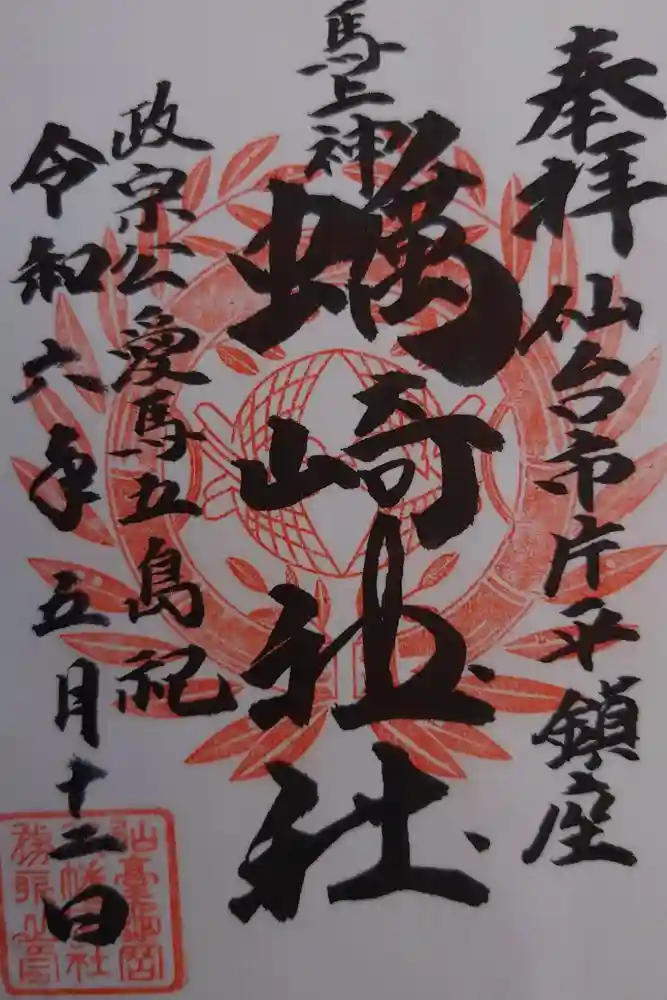 奉拝 仙台市片平鎮座
馬上神
蠣崎神社
政宗公愛馬五島祀
令和六年五月十二日